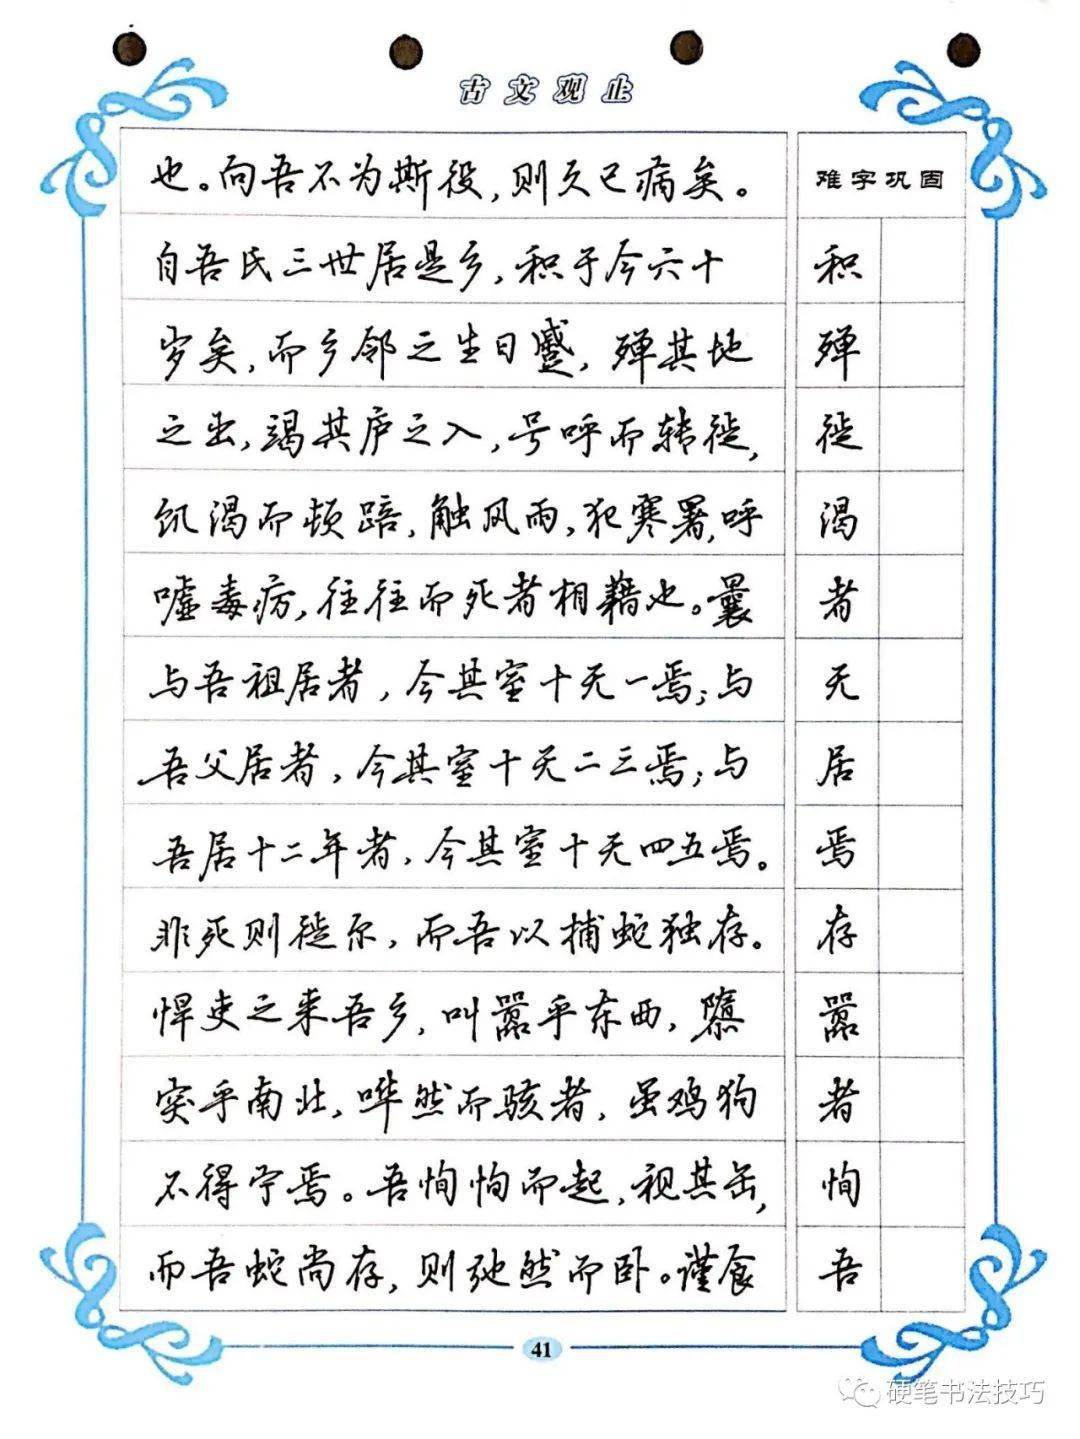 古文观止
也。向吾不为斯役,则久已病矣。
自吾氏三世居是乡,积于今六十
岁矣,而乡邻之生日蹙,殚其地
之出,竭其庐之入,号呼而转徙,
饥渴而顿踣,触风雨,犯寒暑,呼
嘘毒疠,往往而死者相藉也。曩
与吾祖居者,今其室十无一焉;与
吾父居者,今其室十无二三焉;与
吾居十二年者,今其室十无四五焉。
非死则徙尔,而吾以捕蛇独存。
悍吏之来吾乡,叫嚣乎东西,隳
突乎南北,哗然而骇者,虽鸡狗
不得宁焉。吾恂恂而起,视其缶,
而吾蛇尚存,则弛然而卧。谨食
难字巩固
积
殚
徙
渴
者
无
居
焉
存
嚣
者
恂
吾
41
硬笔书法技巧